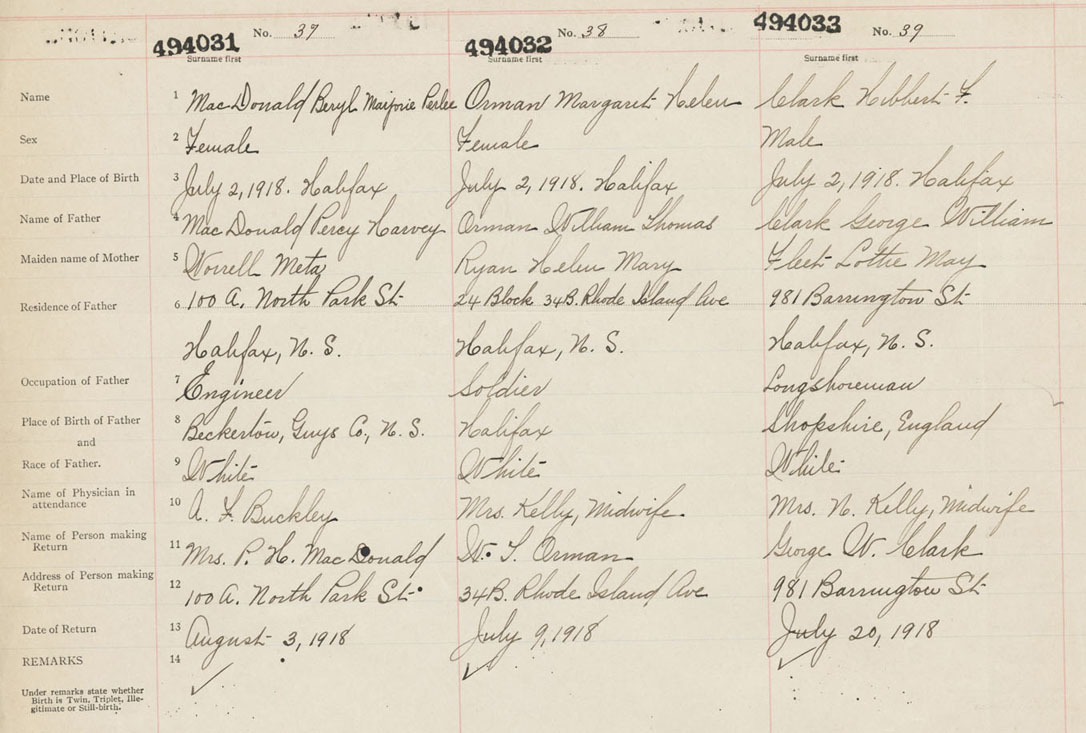 494031 No. 37 494032 No. 38 494033 No. 39
Surname first Surname first Surname first
Name 1 MacDonald Beryl Marjorie Perlee Orman Margaret Helen Clark Hibbert F.
Sex 2 Female Female Male
Date and Place of Birth 3 July 2, 1918. Halifax July 2, 1918. Halifax July 2, 1918. Halifax
Name of Father 4 MacDonald Percy Harvey Orman William Thomas Clark George William
Maiden name of Mother 5 Worrell Meta Ryan Helen Mary Fleet Lottie May
Residence of Father 6 100 A. North Park St 24 Block 34B. Rhode Island Ave 981 Barrington St
Halifax, N. S. Halifax, N. S. Halifax, N. S.
Occupation of Father 7 Engineer Soldier Longshoreman
Place of Birth of Father 8 Beckertow, Guys Co., N. S. Halifax Shopshire, England
and
Race of Father. 9 White White White
Name of Physician in
attendance 10 A. F. Buckley Mrs. Kelly, Midwife. Mrs. N. Kelly, Midwife
Name of Person making
Return 11 Mrs. P. H. MacDonald W. T. Orman George W. Clark
Address of Person making
Return 12 100 A. North Park St. 34B. Rhode Island Ave 981 Barrington St
Date of Return 13 August 3, 1918 July 9, 1918 July 20, 1918
REMARKS 14
Under remarks state whether
Birth is Twin, Triplet, Ille-
gitimate or Still-birth.